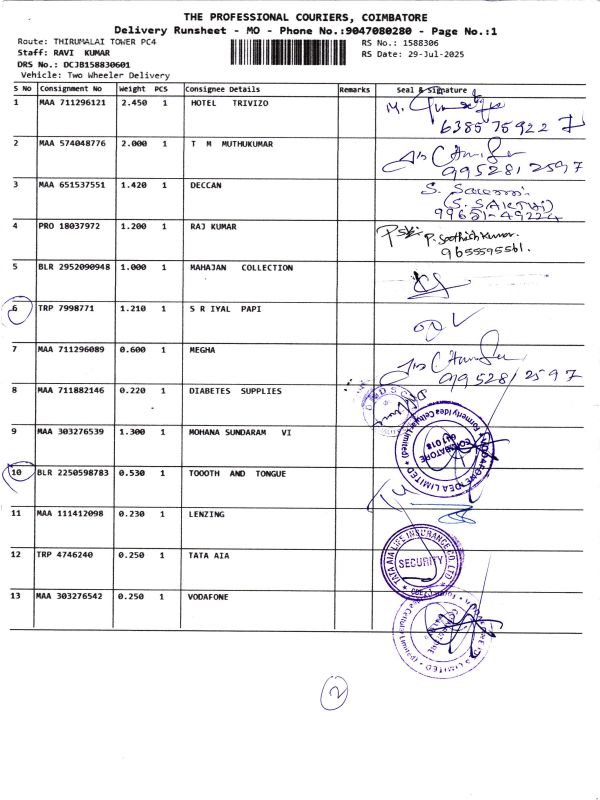 THE PROFESSIONAL COURIERS, COIMBATORE
Delivery Runsheet - MO - Phone No.:9047080280 - Page No.:1
Route: THIRUMALAI TOWER PC4 RS No.: 1588306
Staff: RAVI KUMAR RS Date: 29-Jul-2025
DRS No.: DCJB158830601
Vehicle: Two Wheeler Delivery
S No Consignment No Weight PCS Consignee Details Remarks Seal & Signature
1 MAA 711296121 2.450 1 HOTEL TRIVIZO
6385 75922 7
2 MAA 574048776 2.000 1 T M MUTHUKUMAR
995281 2597
3 MAA 651537551 1.420 1 DECCAN
(S. SAKTHI)
99651-49224
4 PRO 18037972 1.200 1 RAJ KUMAR
P. Sathish Kumar.
9655595561.
5 BLR 2952090948 1.000 1 MAHAJAN COLLECTION
6 TRP 7998771 1.210 1 S R IYAL PAPI
7 MAA 711296089 0.600 1 MEGHA
995281 2597
8 MAA 711882146 0.220 1 DIABETES SUPPLIES
9 MAA 303276539 1.300 1 MOHANA SUNDARAM VI
VODAFONE IDEA LIMITED (Formerly Idea Cellular Limited)
COIMBATORE
641018
10 BLR 2250598783 0.530 1 TOOOTH AND TONGUE
11 MAA 111412098 0.230 1 LENZING
12 TRP 4746240 0.250 1 TATA AIA
TATA AIA LIFE INSURANCE CO. LTD
SECURITY
13 MAA 303276542 0.250 1 VODAFONE
2